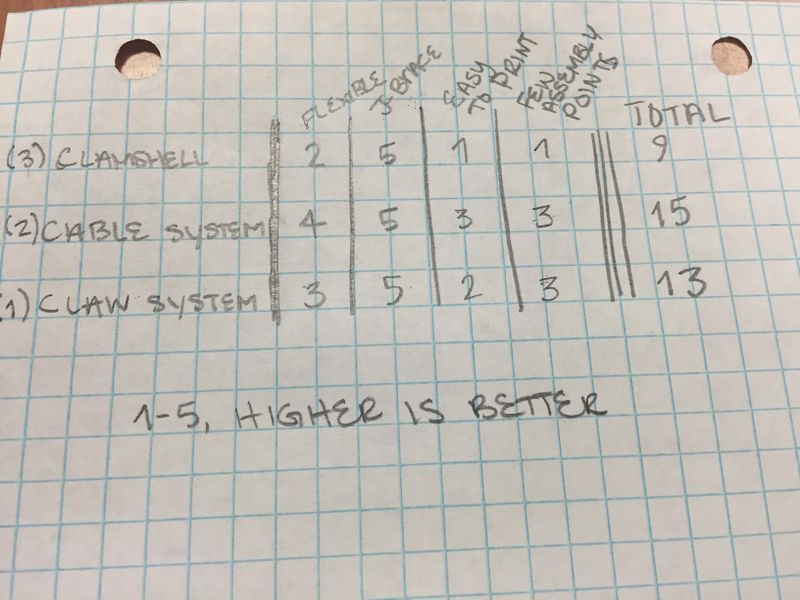 FLEXIBLE J-BRACE EASY TO PRINT FEW ASSEMBLY POINTS TOTAL
(3) CLAMSHELL 2 5 1 1 9
(2) CABLE SYSTEM 4 5 3 3 15
(1) CLAW SYSTEM 3 5 2 3 13
1-5, HIGHER IS BETTER